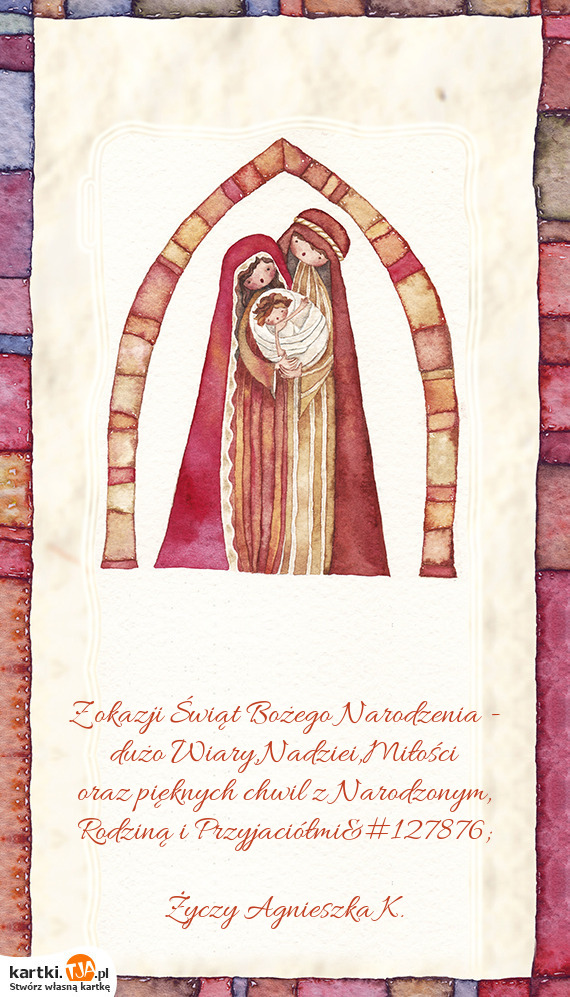 Z okazji Świąt Bożego Narodzenia -
dużo Wiary,Nadziei,Miłości
oraz pięknych chwil z Narodzonym,
Rodziną i Przyjaciółmi&#127876;
Życzy Agnieszka K.
kartki.TJA.pl
Stwórz własną kartkę